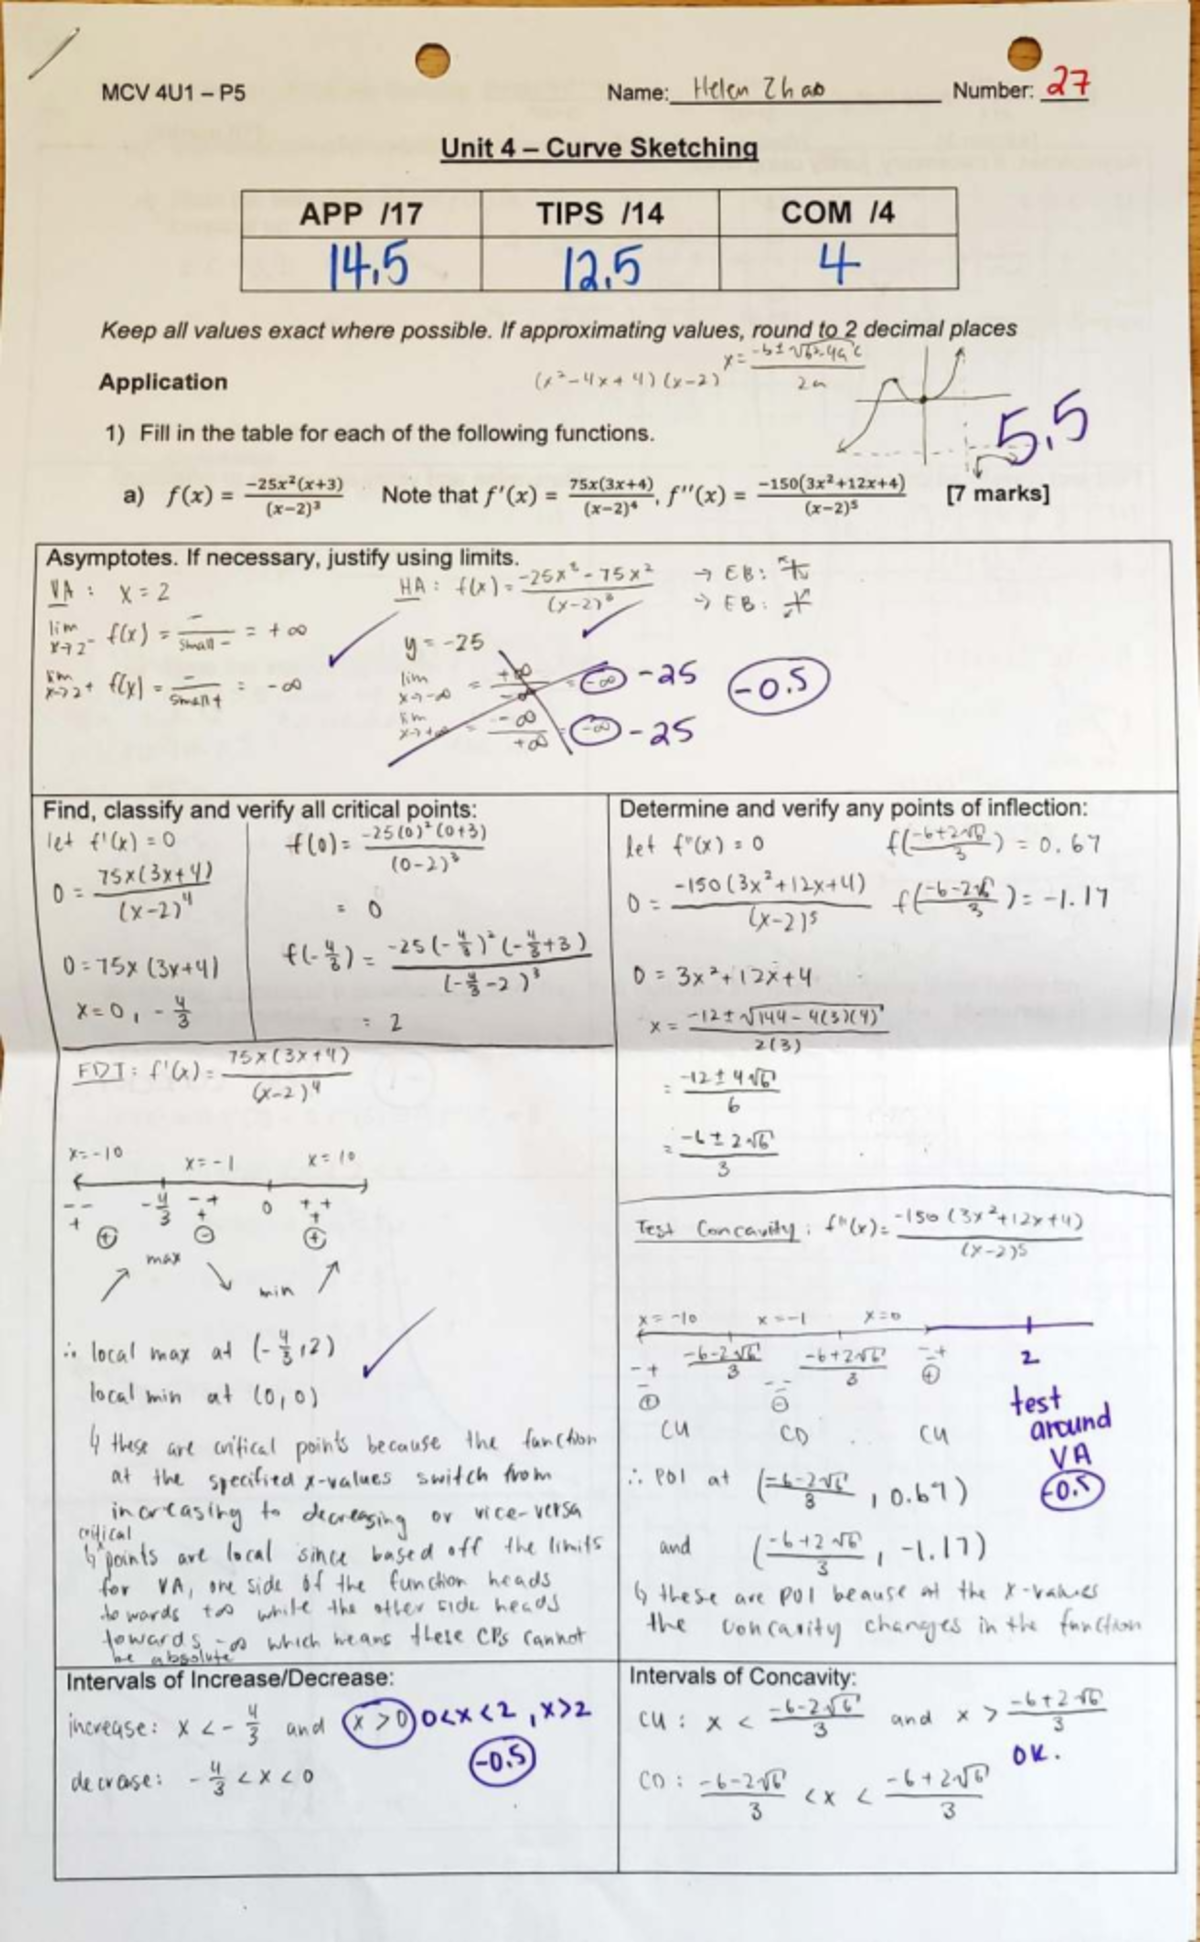 MCV 4U1 – P5
Name: Helen Zhao Number: 27
Unit 4 – Curve Sketching
APP /17 TIPS /14 COM /4
14.5 12.5 4
Keep all values exact where possible. If approximating values, round to 2 decimal places
x = (-b ± √(b²-4ac))/2a
Application (x²-4x+4)(x-2)
1) Fill in the table for each of the following functions.
5.5
a) f(x) = -25x²(x+3)/(x-2)³ Note that f'(x) = 75x(3x+4)/(x-2)⁴, f''(x) = -150(3x²+12x+4)/(x-2)⁵ [7 marks]
Asymptotes. If necessary, justify using limits.
VA: x = 2
lim x→2⁻ f(x) = -/small- = +∞
lim x→2+ f(x) = -/small+ = -∞
HA: f(x) = (-25x³-75x²)/(x-2)³ → EB:
→ EB:
y = -25
lim x→-∞ = +∞/-∞ = -∞ -25
lim x→+∞ = -∞/+∞ = -∞ -25
-0.5
Find, classify and verify all critical points:
let f'(x) = 0
0 = 75x(3x+4)/(x-2)⁴
0 = 75x(3x+4)
x = 0, -4/3
f(0) = -25(0)²(0+3)/(0-2)³
= 0
f(-4/3) = -25(-4/3)²(-4/3+3)/(-4/3-2)³
= 2
FDT: f'(x) = 75x(3x+4)/(x-2)⁴
x=-10 x=-1 x=10
-- -4/3 -+ 0 ++
+ + +
+ - +
max
min
∴ local max at (-4/3, 2)
local min at (0, 0)
↳ these are critical points because the function
at the specified x-values switch from
increasing to decreasing or vice-versa
critical
↳ points are local since based off the limits
for VA, one side of the function heads
towards +∞ while the other side heads
towards -∞ which means these CPs cannot
be absolute
Determine and verify any points of inflection:
let f''(x) = 0
0 = -150(3x²+12x+4)/(x-2)⁵
0 = 3x²+12x+4
x = (-12±√(144-4(3)(4)))/2(3)
= (-12±4√6)/6
= (-6±2√6)/3
f((-6+2√6)/3) = 0.67
f((-6-2√6)/3) = -1.17
Test Concavity: f''(x) = -150(3x²+12x+4)/(x-2)⁵
x=-10 x=-1 x=0
-+ (-6-2√6)/3 (-6+2√6)/3 -+ 2
- -- -
+ - +
CU CD CU
test
around
VA
-0.5
∴ POI at ((-6-2√6)/3, 0.67)
and ((-6+2√6)/3, -1.17)
↳ these are POI beause at the x-values
the concavity changes in the function
Intervals of Increase/Decrease:
increase: x < -4/3 and x > 0 0<x<2, x>2
-0.5
decrase: -4/3 < x < 0
Intervals of Concavity:
CU: x < (-6-2√6)/3 and x > (-6+2√6)/3
OK.
CD: (-6-2√6)/3 < x < (-6+2√6)/3